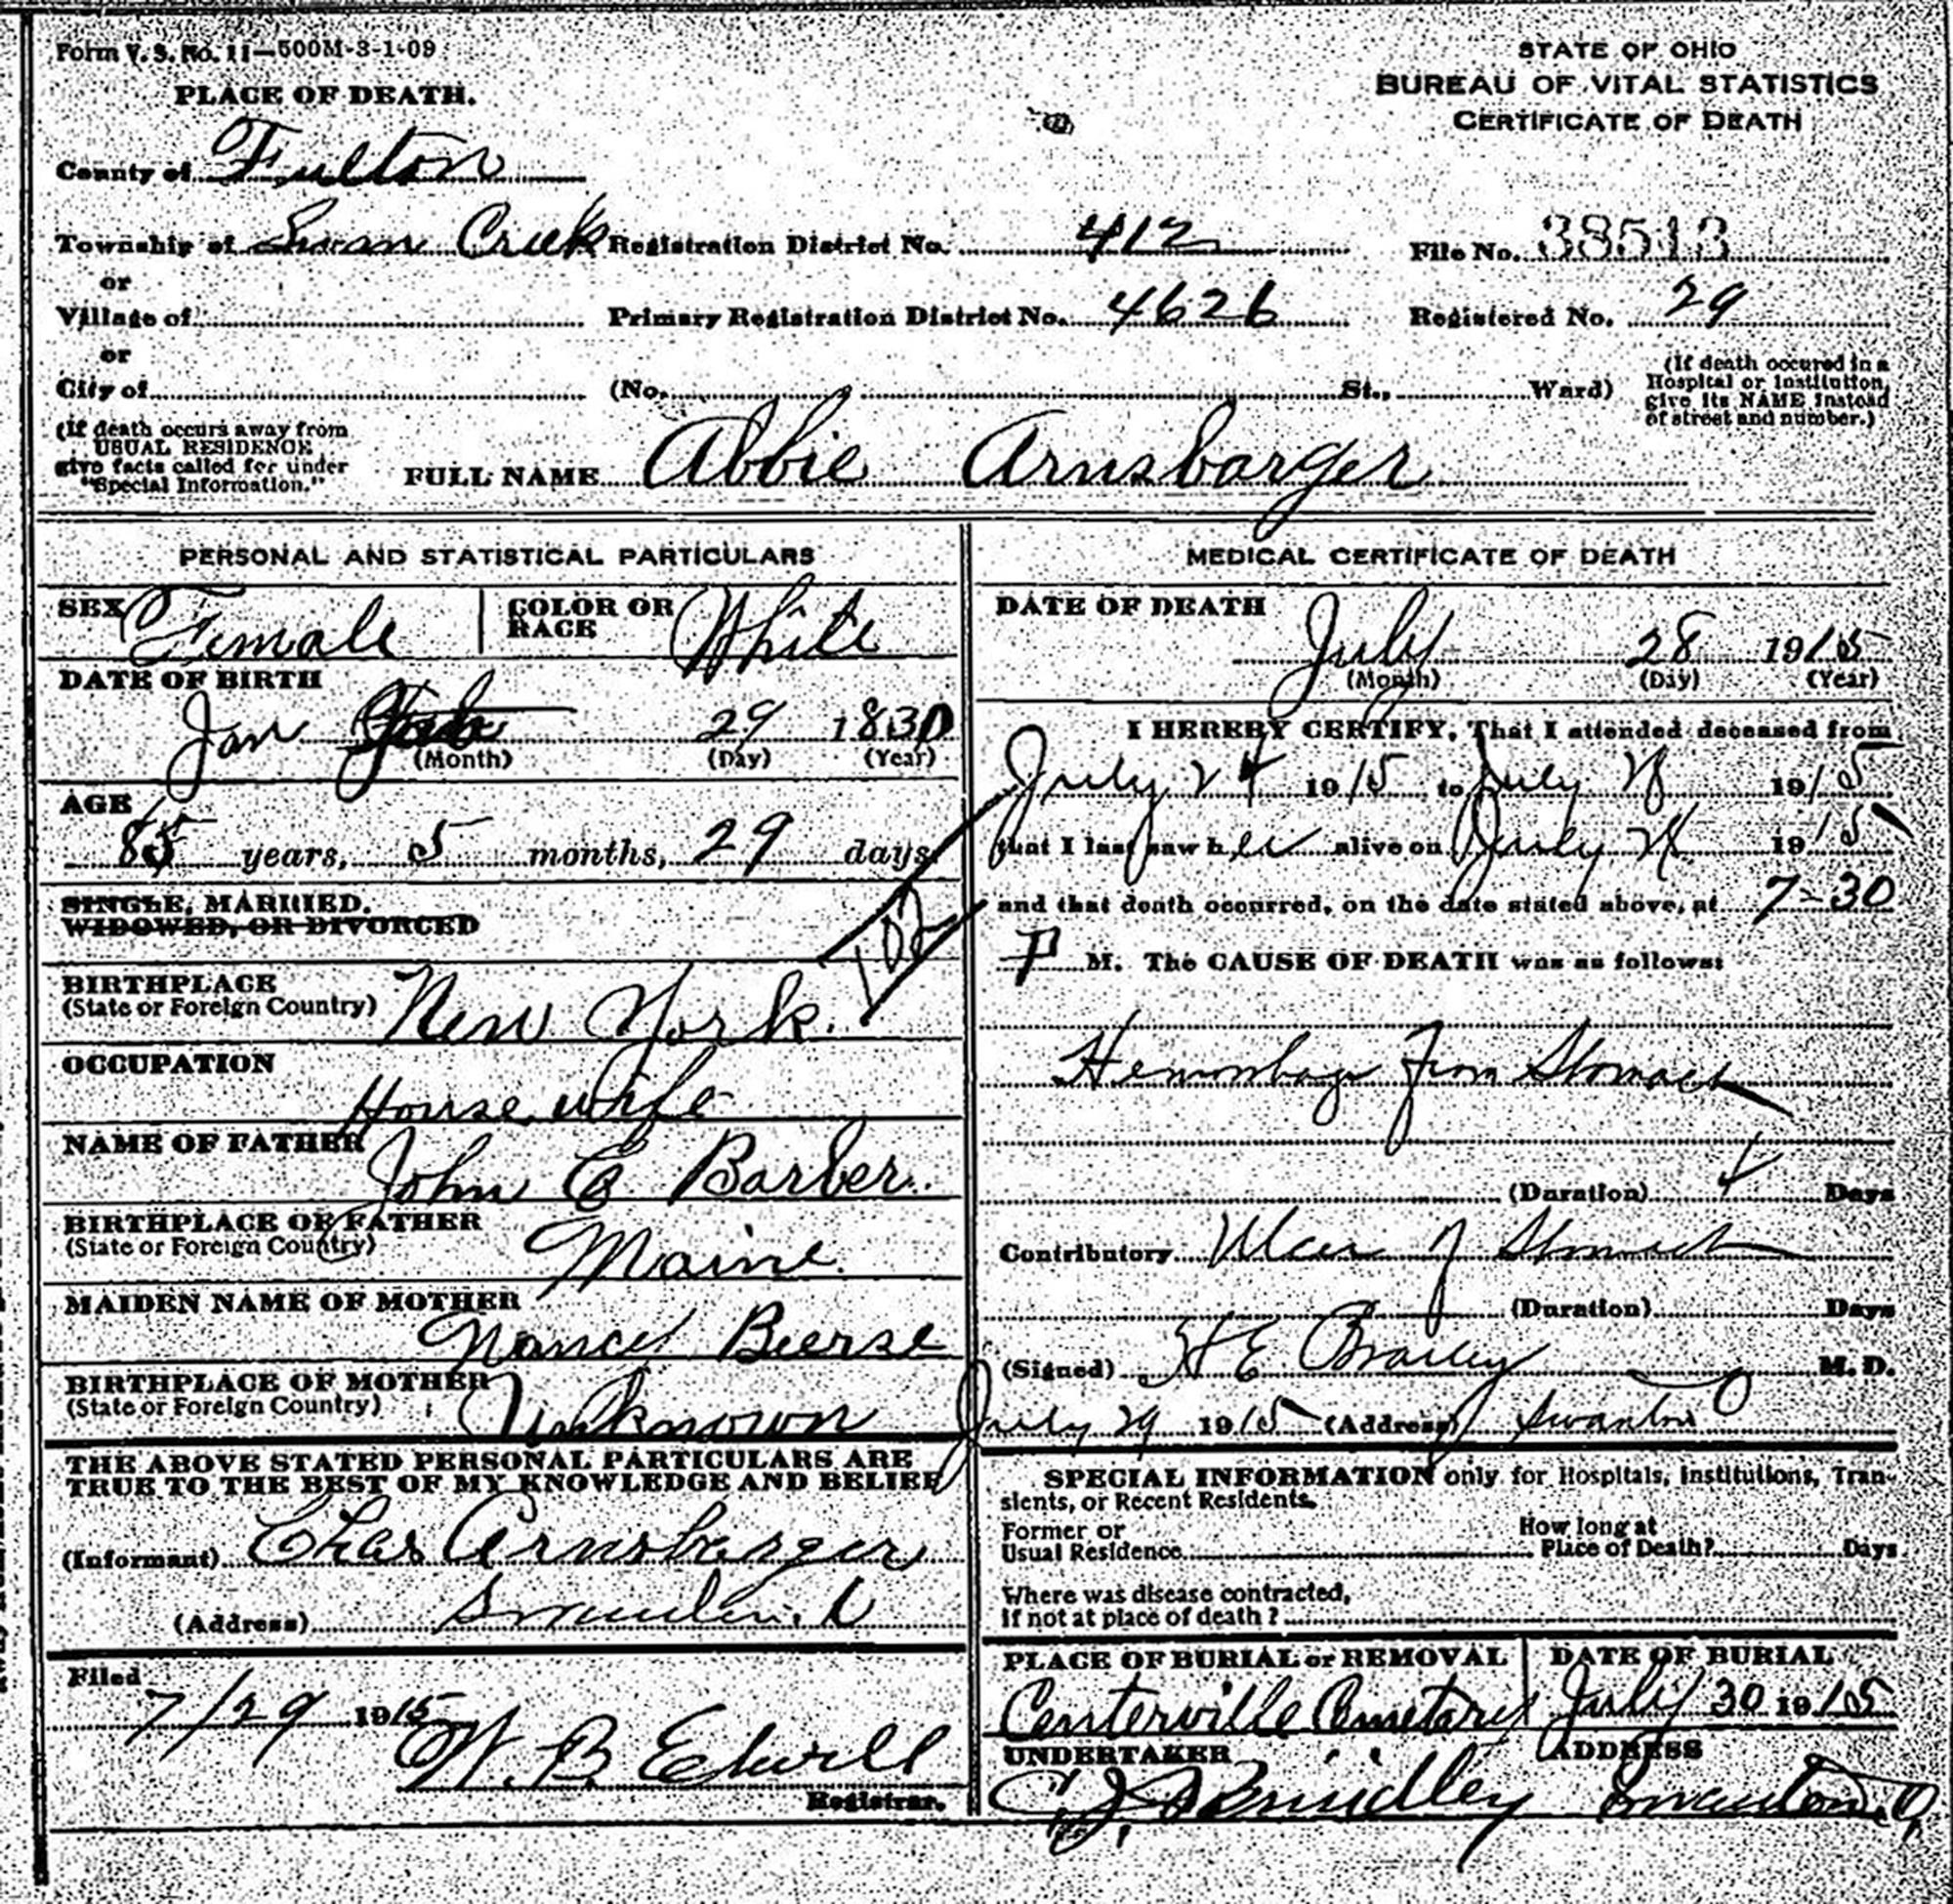 Form V. S. No. 11—500M-3-1-09
STATE OF OHIO
BUREAU OF VITAL STATISTICS
CERTIFICATE OF DEATH
PLACE OF DEATH.
County of Fulton
Township of Swan Creek Registration District No. 412 File No. 38513
or
Village of Primary Registration District No. 4626 Registered No. 29
or
City of (No. St., Ward)
(If death occured in a
Hospital or Institution,
give its NAME instead
of street and number.)
(If death occurs away from
USUAL RESIDENCE
give facts called for under
"Special Information."
FULL NAME Abbie Arnsbarger
PERSONAL AND STATISTICAL PARTICULARS
SEX Female COLOR OR RACE White
DATE OF BIRTH
Jan 29 1830
(Month) (Day) (Year)
AGE
85 years, 5 months, 29 days
SINGLE, MARRIED,
WIDOWED, OR DIVORCED
BIRTHPLACE
(State or Foreign Country) New York.
OCCUPATION
House wife
NAME OF FATHER John E Barber.
BIRTHPLACE OF FATHER
(State or Foreign Country) Maine.
MAIDEN NAME OF MOTHER
Nancy Bierse
BIRTHPLACE OF MOTHER
(State or Foreign Country) Unknown
THE ABOVE STATED PERSONAL PARTICULARS ARE
TRUE TO THE BEST OF MY KNOWLEDGE AND BELIEF
(Informant) Chas Arnsbarger
(Address) Swanton, O
Filed
7/29 1915 W. B. Elwell
Registrar.
MEDICAL CERTIFICATE OF DEATH
DATE OF DEATH
July 28 1915
(Month) (Day) (Year)
I HEREBY CERTIFY, That I attended deceased from
July 24 1915 to July 28 1915
that I last saw her alive on July 28 1915
and that death occurred, on the date stated above, at 7-30
P M. The CAUSE OF DEATH was as follows:
102
Hemorrhage from Stomach
(Duration) 4 Days
Contributory Ulcer of Stomach
(Duration) Days
(Signed) H E Brailey M. D.
July 29 1915 (Address) Swanton O
SPECIAL INFORMATION only for Hospitals, Institutions, Tran-
sients, or Recent Residents.
Former or How long at
Usual Residence Place of Death? Days
Where was disease contracted,
If not at place of death?
PLACE OF BURIAL or REMOVAL DATE OF BURIAL
Centerville Cemetary July 30 1915
UNDERTAKER ADDRESS
C. J. Swanton, O,